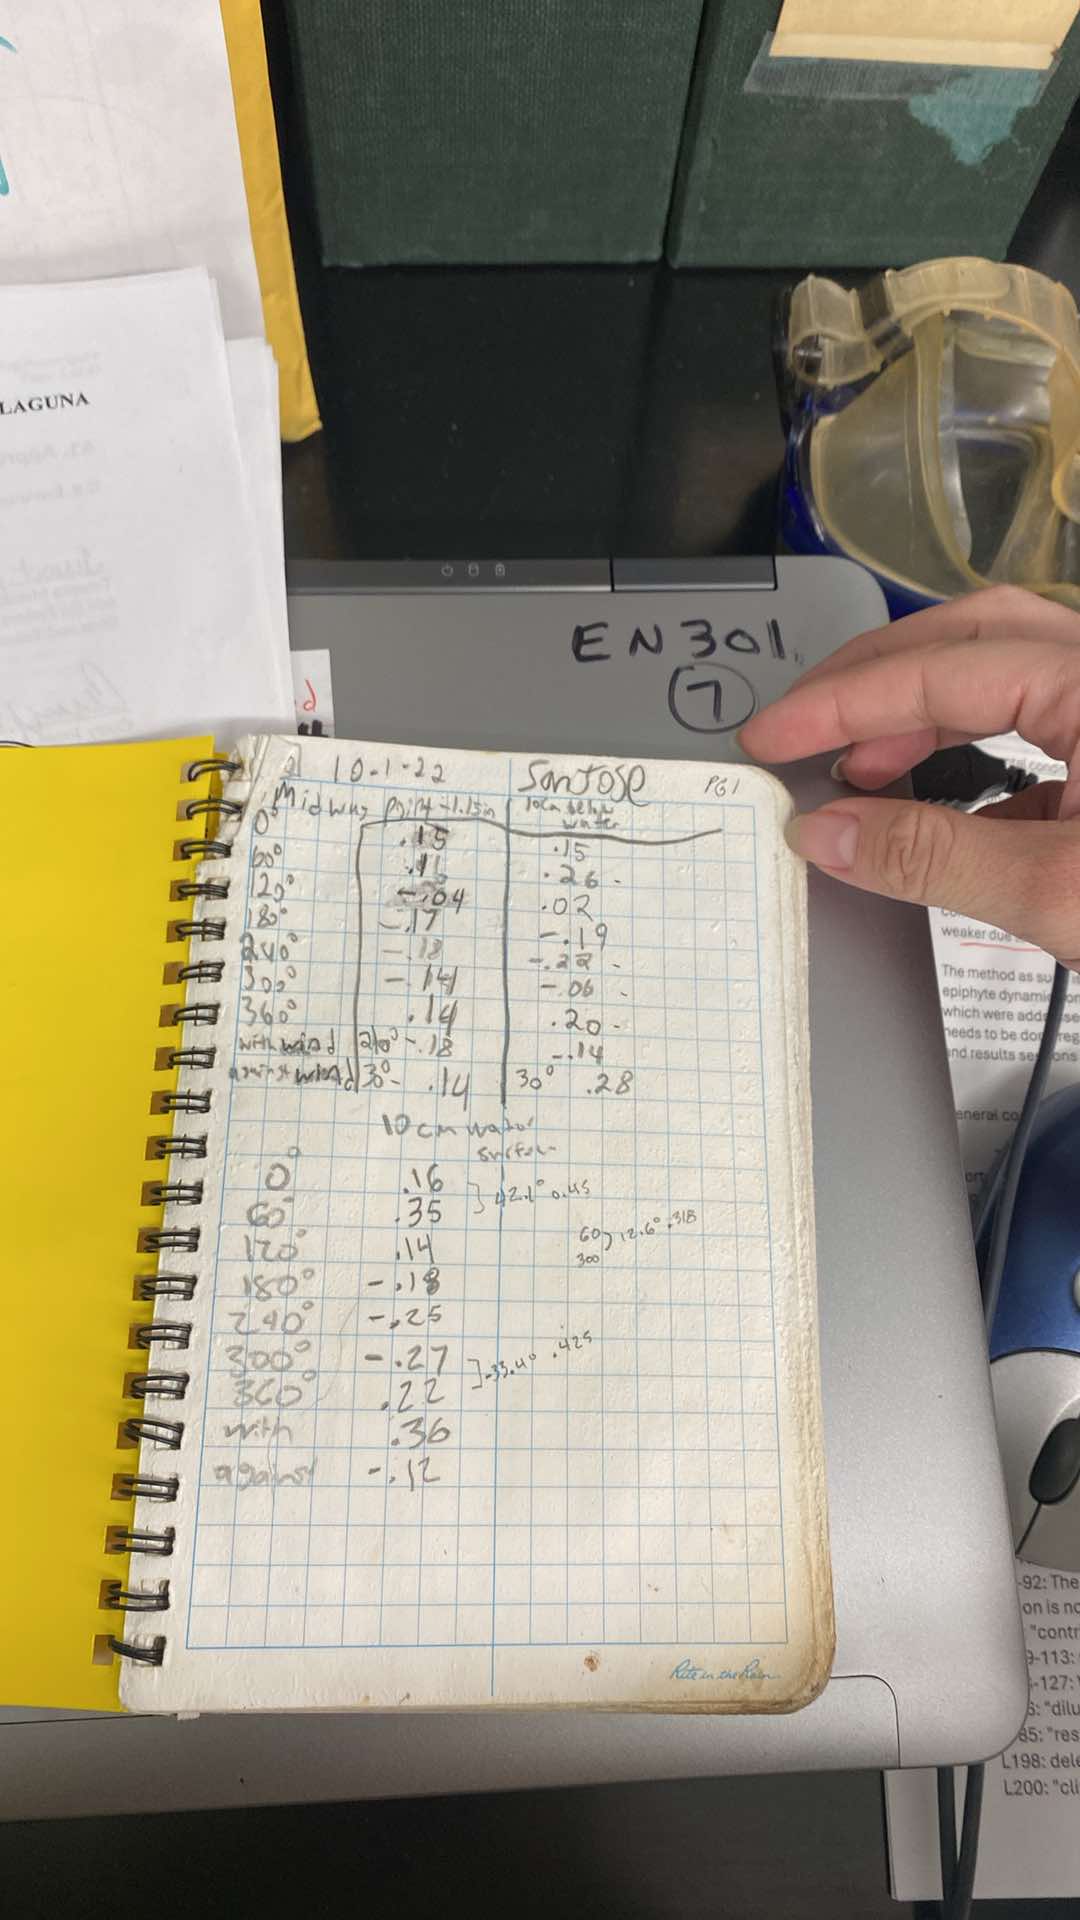 LAGUNA
EN 301
7
10-1-22 San Jose PG 1
Midway point - 1.15m 10cm below
water
0° .15 .15
60° .11 .26 -
120° -.04 .02
180° -.17 -.19
240° -.18 -.22 -
300° -.14 -.06 -
360° .14 .20 -
with wind 210° -.18 -.14
against wind 30° - .14 30° .28
10cm water
surface
0° .16
60° .35
] 42.1° 0.45
120° .14
60
300
} 12.6° .318
180° -.18
240° -.25
300° -.27
360° .22
] -33.4° .425
with .36
against -.12
Rite in the Rain
weaker due
The method as
epiphyte dynamic
which were adde
needs to be don
and results se
eneral co
-92: The
on is no
"contr
9-113:
-127:
6: "dilu
85: "res
L198: dele
L200: "cli